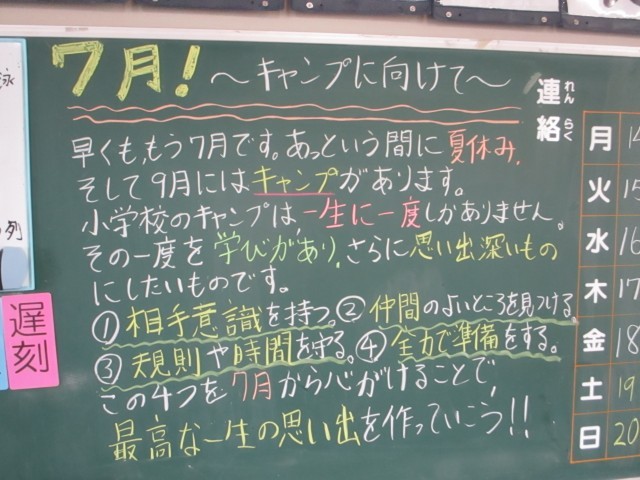 7月!
～キャンプに向けて～
早くも、もう7月です。あっという間に夏休み、
そして9月にはキャンプがあります。
小学校のキャンプは、一生に一度しかありません。
その一度を学びがあり、さらに思い出深いもの
にしたいものです。
①相手意識を持つ。②仲間のよいところを見つける。
③規則や時間を守る。④全力で準備をする。
この4つを7月から心がけることで、
最高な一生の思い出を作っていこう!!
連絡
れん
らく
月 14
火 15
水 16
木 17
金 18
土 19
日 20
泳
列
遅刻